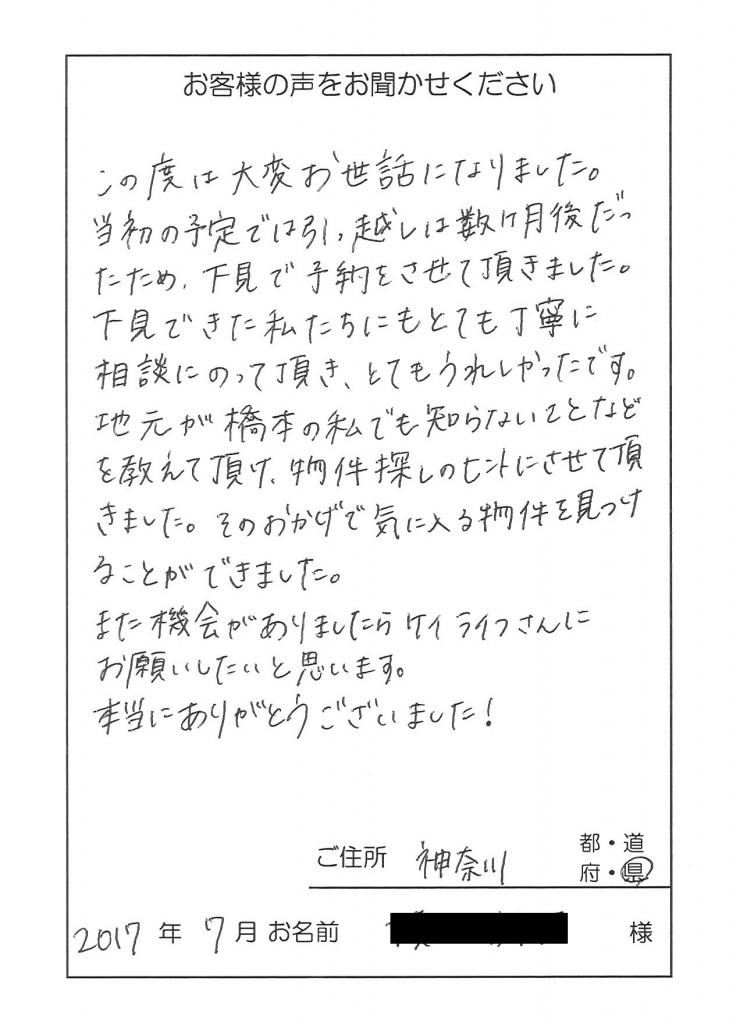 お客様の声をお聞かせください
この度は大変お世話になりました。
当初の予定では引っ越しは数ヶ月後だっ
たため、下見で予約をさせて頂きました。
下見できた私たちにもとても丁寧に
相談にのって頂き、とてもうれしかったです。
地元が橋本の私でも知らないことなど
を教えて頂け、物件探しのヒントにさせて頂
きました。そのおかげで気に入る物件を見つけ
ることができました。
また機会がありましたらケイライフさんに
お願いしたいと思います。
本当にありがとうございました!
ご住所 神奈川 都・道
府・県
2017年 7月 お名前 様